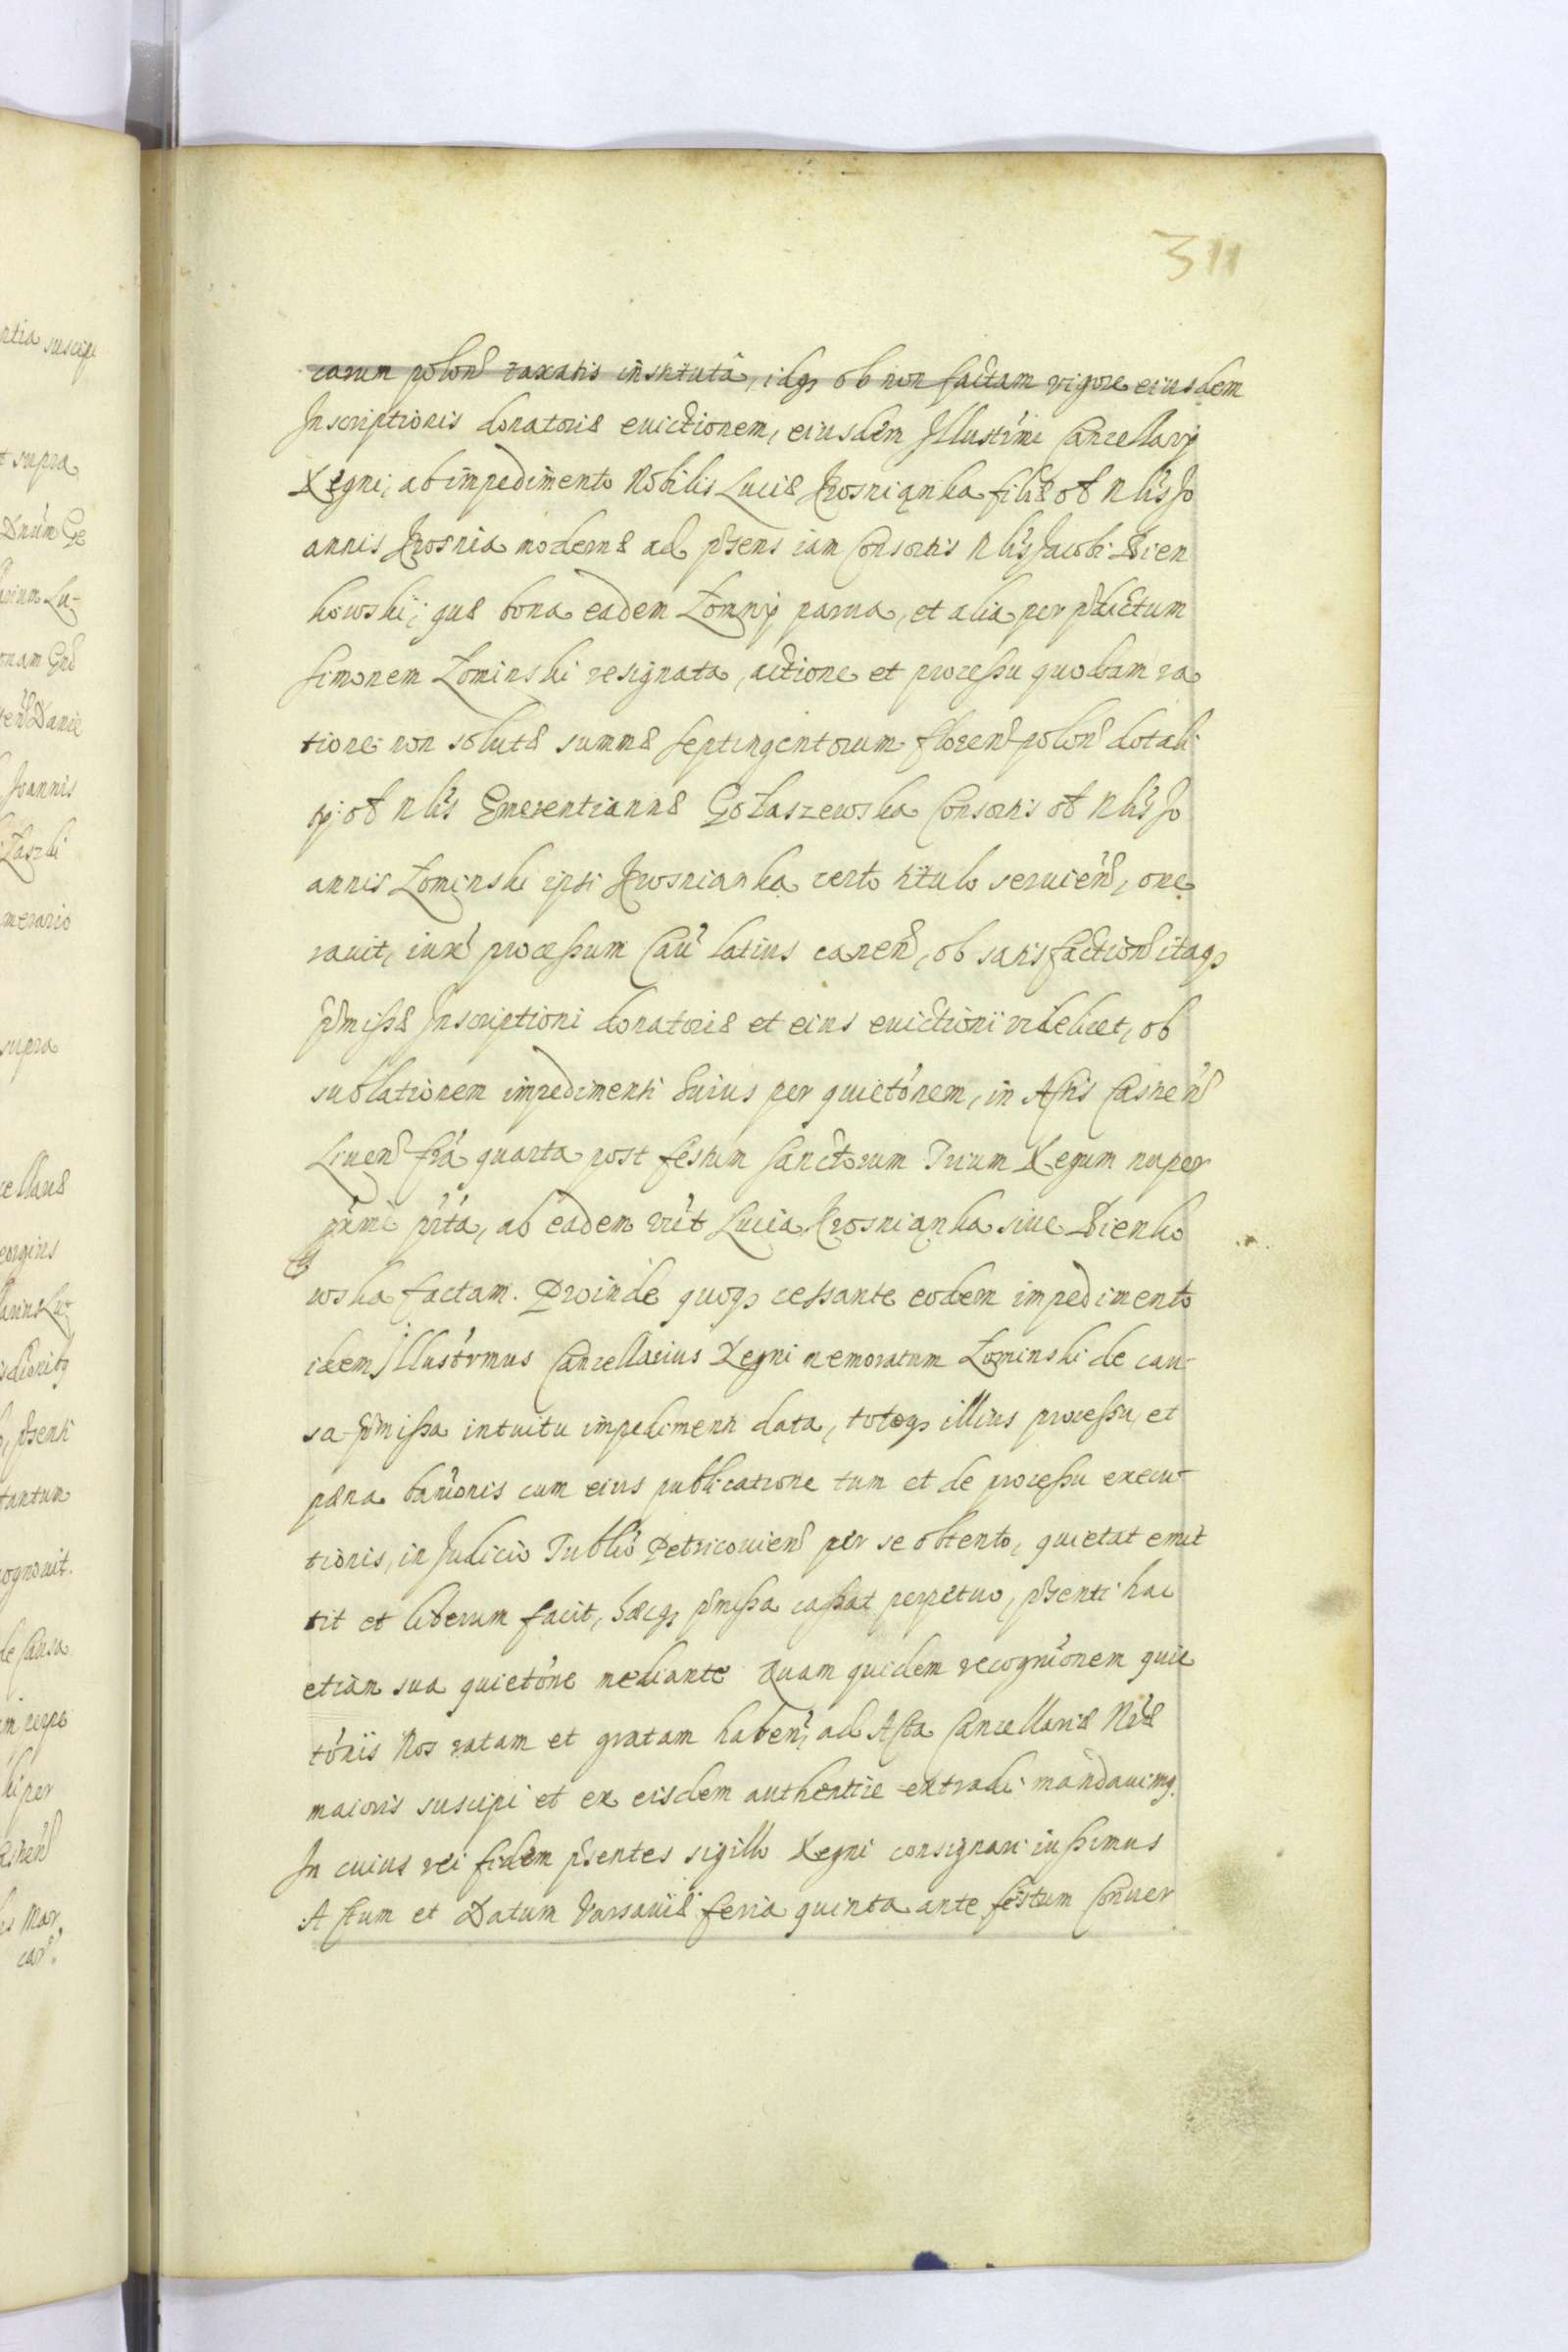 311
carum polon taxatis instituta, idq ob non factam vigore eiusdem
Inscriptionis donatoriæ euictionem, eiusdem Illustrmi Cancellarij
Regni, ab impedimento Nobilis Luciæ Krosnianka filiæ olt Nlis Jo
annis Krosnia modernæ ad pñsens iam Consortis Nlis Jacobi Bien
kowski, quæ bona eadem Łomny parua, et alia per pdictum
Simonem Łominski resignata, actione et processu quodam ra
tione non solutæ summæ Septingentorum floren polon dotali
olt Nlis Emerentiannæ Gołaszewska Consortis olt Nlis Jo
annis Łominski ipsi Krosnianka certo titulo seruien, one
rauit, iuxt processum latius canen, ob satisfaction itaq
pmissæ Inscriptioni donatoriæ et eius euictioni videlicet, ob
sublationem impedimenti huius per quietonem, in Actis Castren
Liuen fria quarta post festum Sanctorum Trium Regum nuper
ab eadem Lucia Krosnianka siue Bienko
wska factam. Proinde quoq cessante eodem impedimento
idem Illustrmus Cancellarius Regni memoratum Łominski de cau
sa pmissa intuitu impedimenti data, totoq illius processu, et
pæna banionis cum eius publicatione tum et de processu execu
tionis, in Judicio Petricouien per se obtento, quietat emit
tit et liberum facit, hæcq pmissa cassat perpetuo, psenti hac
etiam sua quietone mediante Quam quidem recognionem quie
tonis Nos ratam et gratam haben, ad Acta Cancellariæ Nræ
maioris suscipi et ex eisdem authentice extradi mandauimq.
In cuius rei fidem psentes sigillo Regni consignari iussimus
Actum et Datum Varsauiæ feria quinta ante festum Conuer